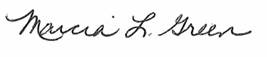 Marcia L. Green